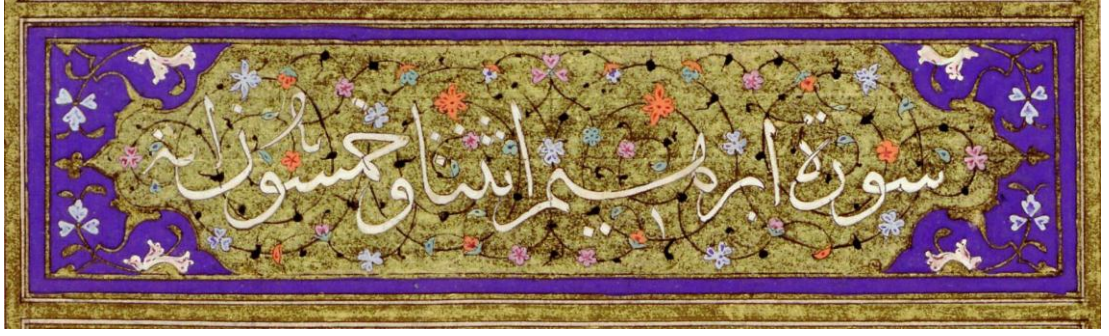 سورة ابرهيم اثنتا وخمسون اية